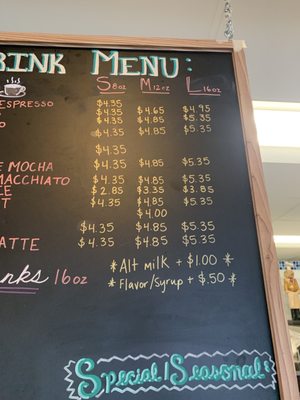 RINK MENU:
S 8oz M 12oz L 16oz
ESPRESSO $4.35 $4.65 $4.95
$4.35 $4.85 $5.35
O $4.35 $4.85 $5.35
$4.35
E MOCHA $4.35 $4.85 $5.35
MACCHIATO $4.35 $4.85 $5.35
E $2.85 $3.35 $3.85
T $4.35 $4.85 $5.35
$4.00
$4.35 $4.85 $5.35
ATTE $4.35 $4.85 $5.35
nks 16oz
*Alt milk + $1.00*
*Flavor/Syrup + $.50*
Special/Seasonal